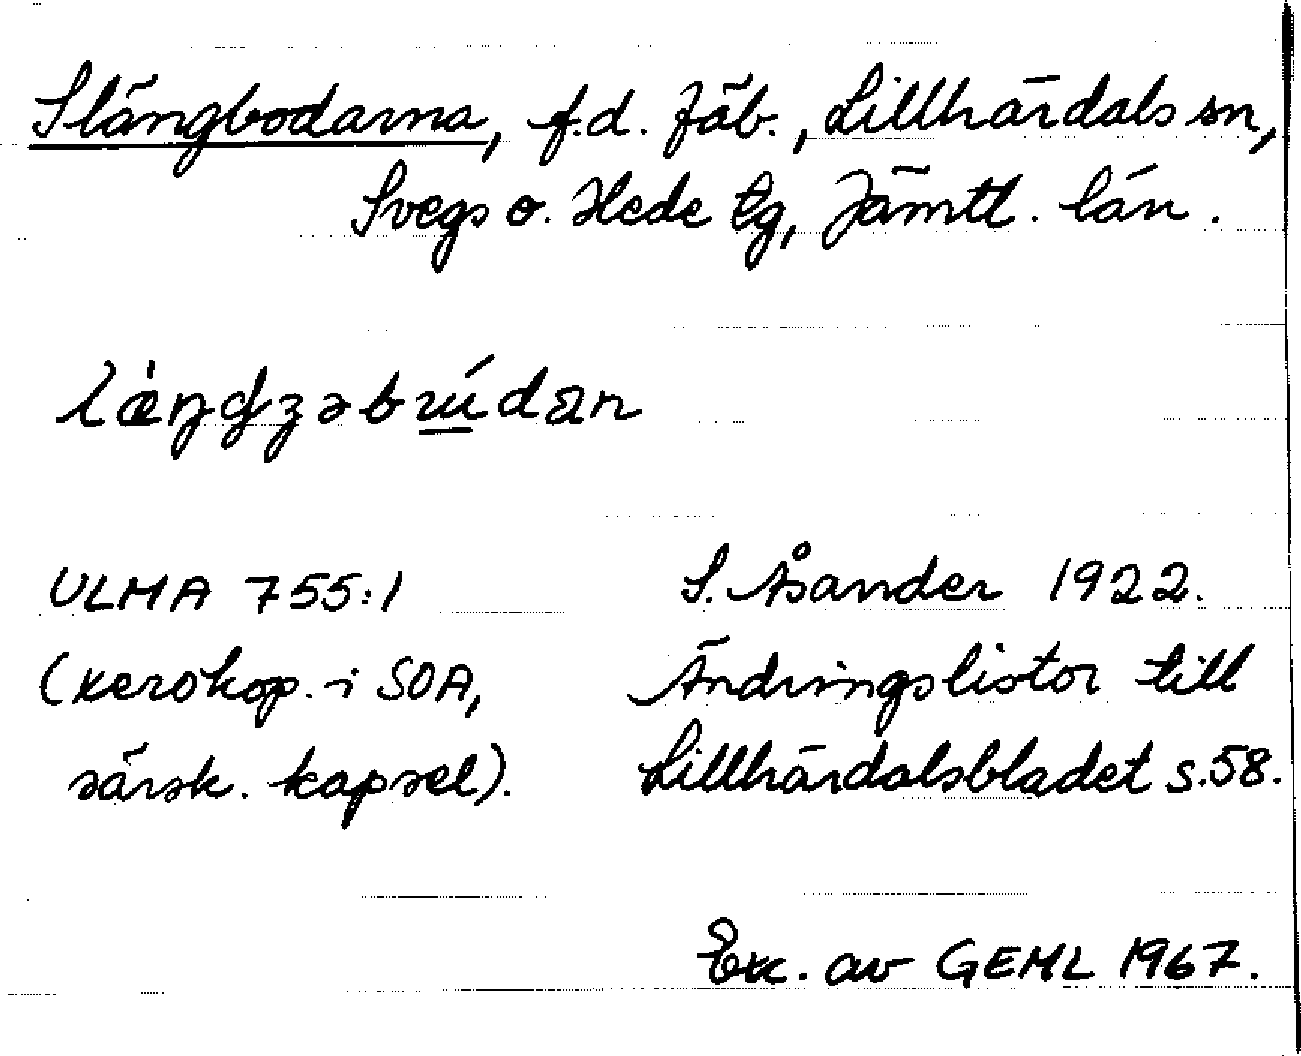 Slängbodarna, f.d. fäb., Lillhärdals sn,
Svegs o. Hede tg, Jämtl. län.
ULMA 755:1 S. Åsander 1922.
(xerokop. i SOA, Ändringslistor till
särsk. kapsel). Lillhärdalsbladet s.58.
Exc. av GEML 1967.